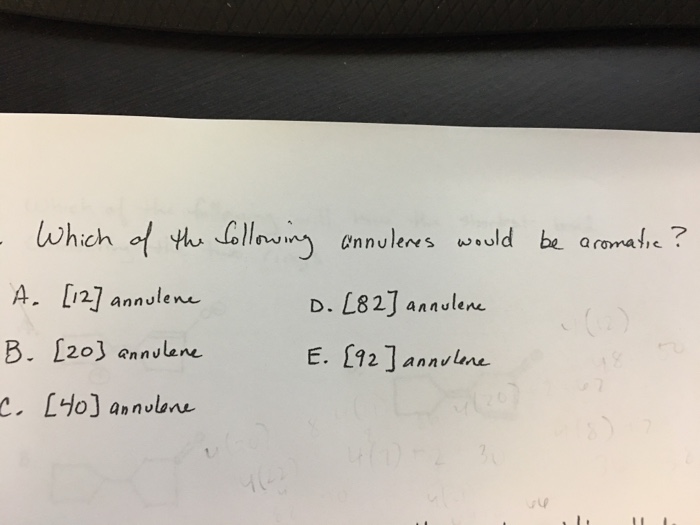 Which of the following annulenes would be aromatic?
A. [12] annulene
D. [82] annulene
B. [20] annulene
E. [92] annulene
C. [40] annulene